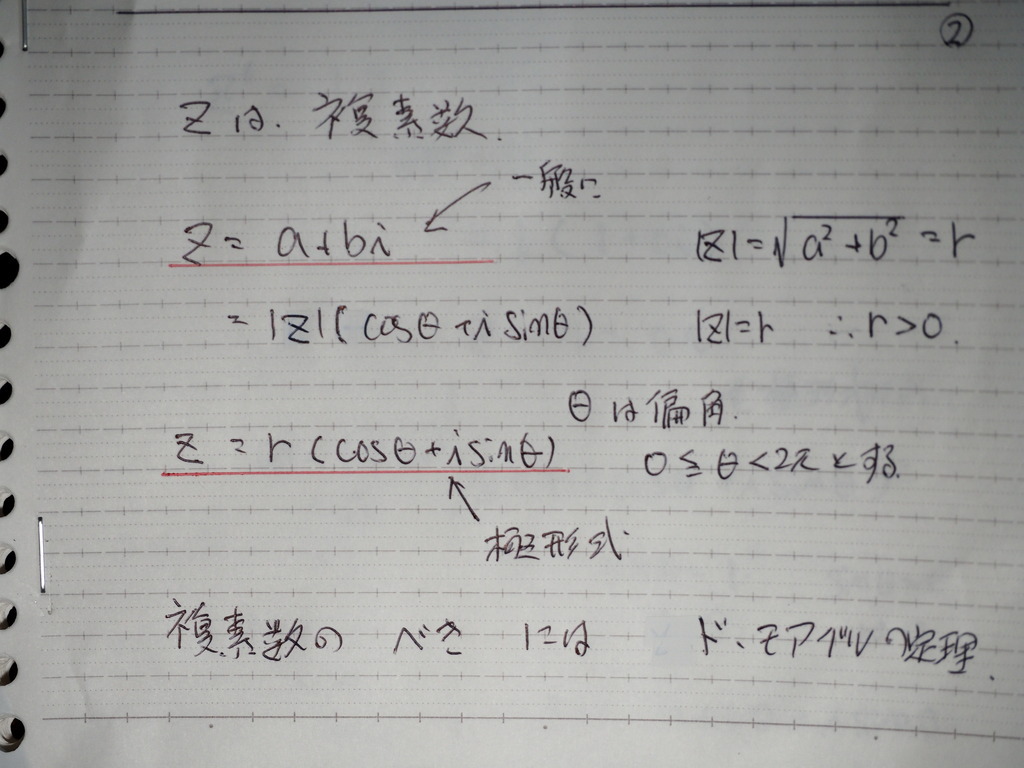 ②
Zは、複素数.
一般に
Z = a+bi
|Z|=√a²+b² = r
= |Z|(cosθ+i sinθ)
|Z|=r ∴r>0.
θは偏角.
Z = r(cosθ+i sinθ)
0≦θ<2πとする.
極形式
複素数の べき には ド・モアブルの定理.